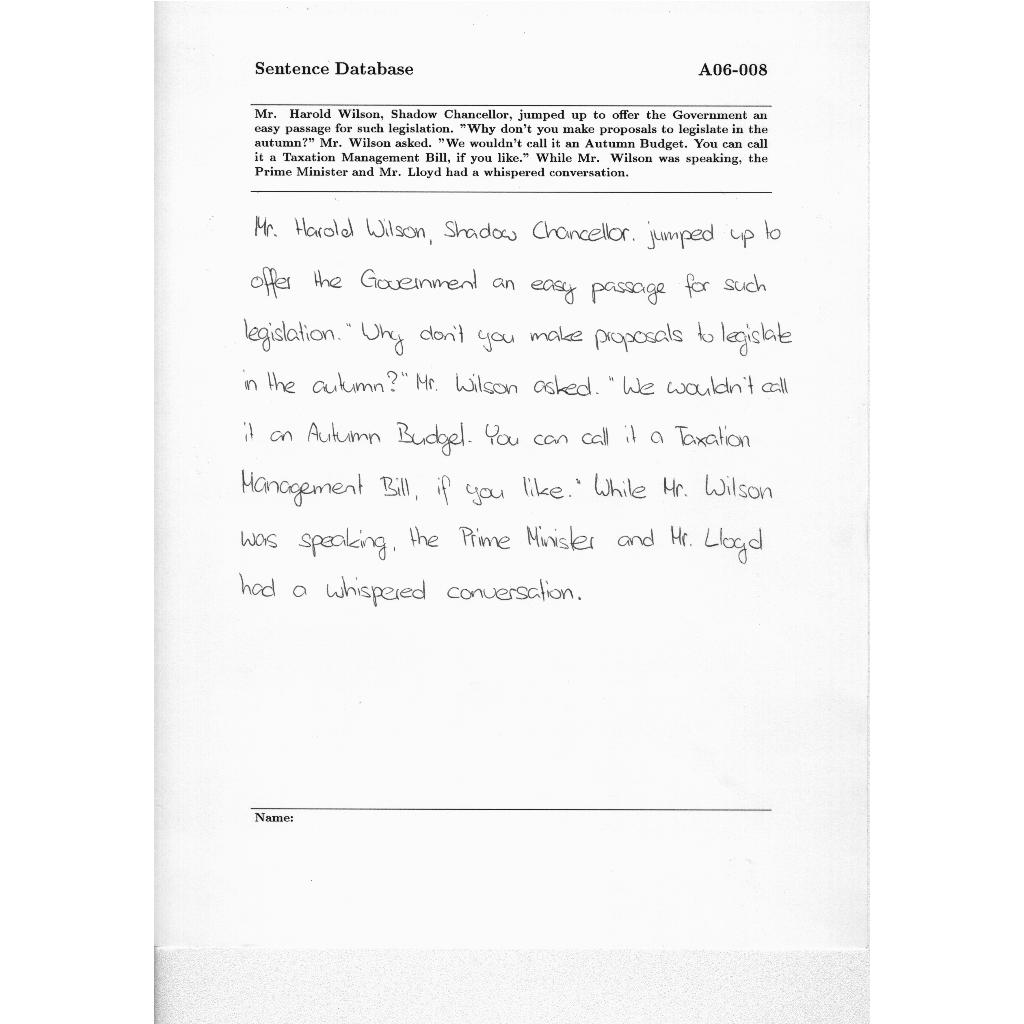 Sentence Database A06-008
Mr. Harold Wilson, Shadow Chancellor, jumped up to offer the Government an
easy passage for such legislation. "Why don't you make proposals to legislate in the
autumn?" Mr. Wilson asked. "We wouldn't call it an Autumn Budget. You can call
it a Taxation Management Bill, if you like." While Mr. Wilson was speaking, the
Prime Minister and Mr. Lloyd had a whispered conversation.
Mr. Harold Wilson, Shadow Chancellor. jumped up to
offer the Government an easy passage for such
legislation. "Why don't you make proposals to legislate
in the autumn?" Mr. Wilson asked. "We wouldn't call
it an Autumn Budget. You can call it a Taxation
Management Bill, if you like." While Mr. Wilson
was speaking, the Prime Minister and Mr. Lloyd
had a whispered conversation.
Name: